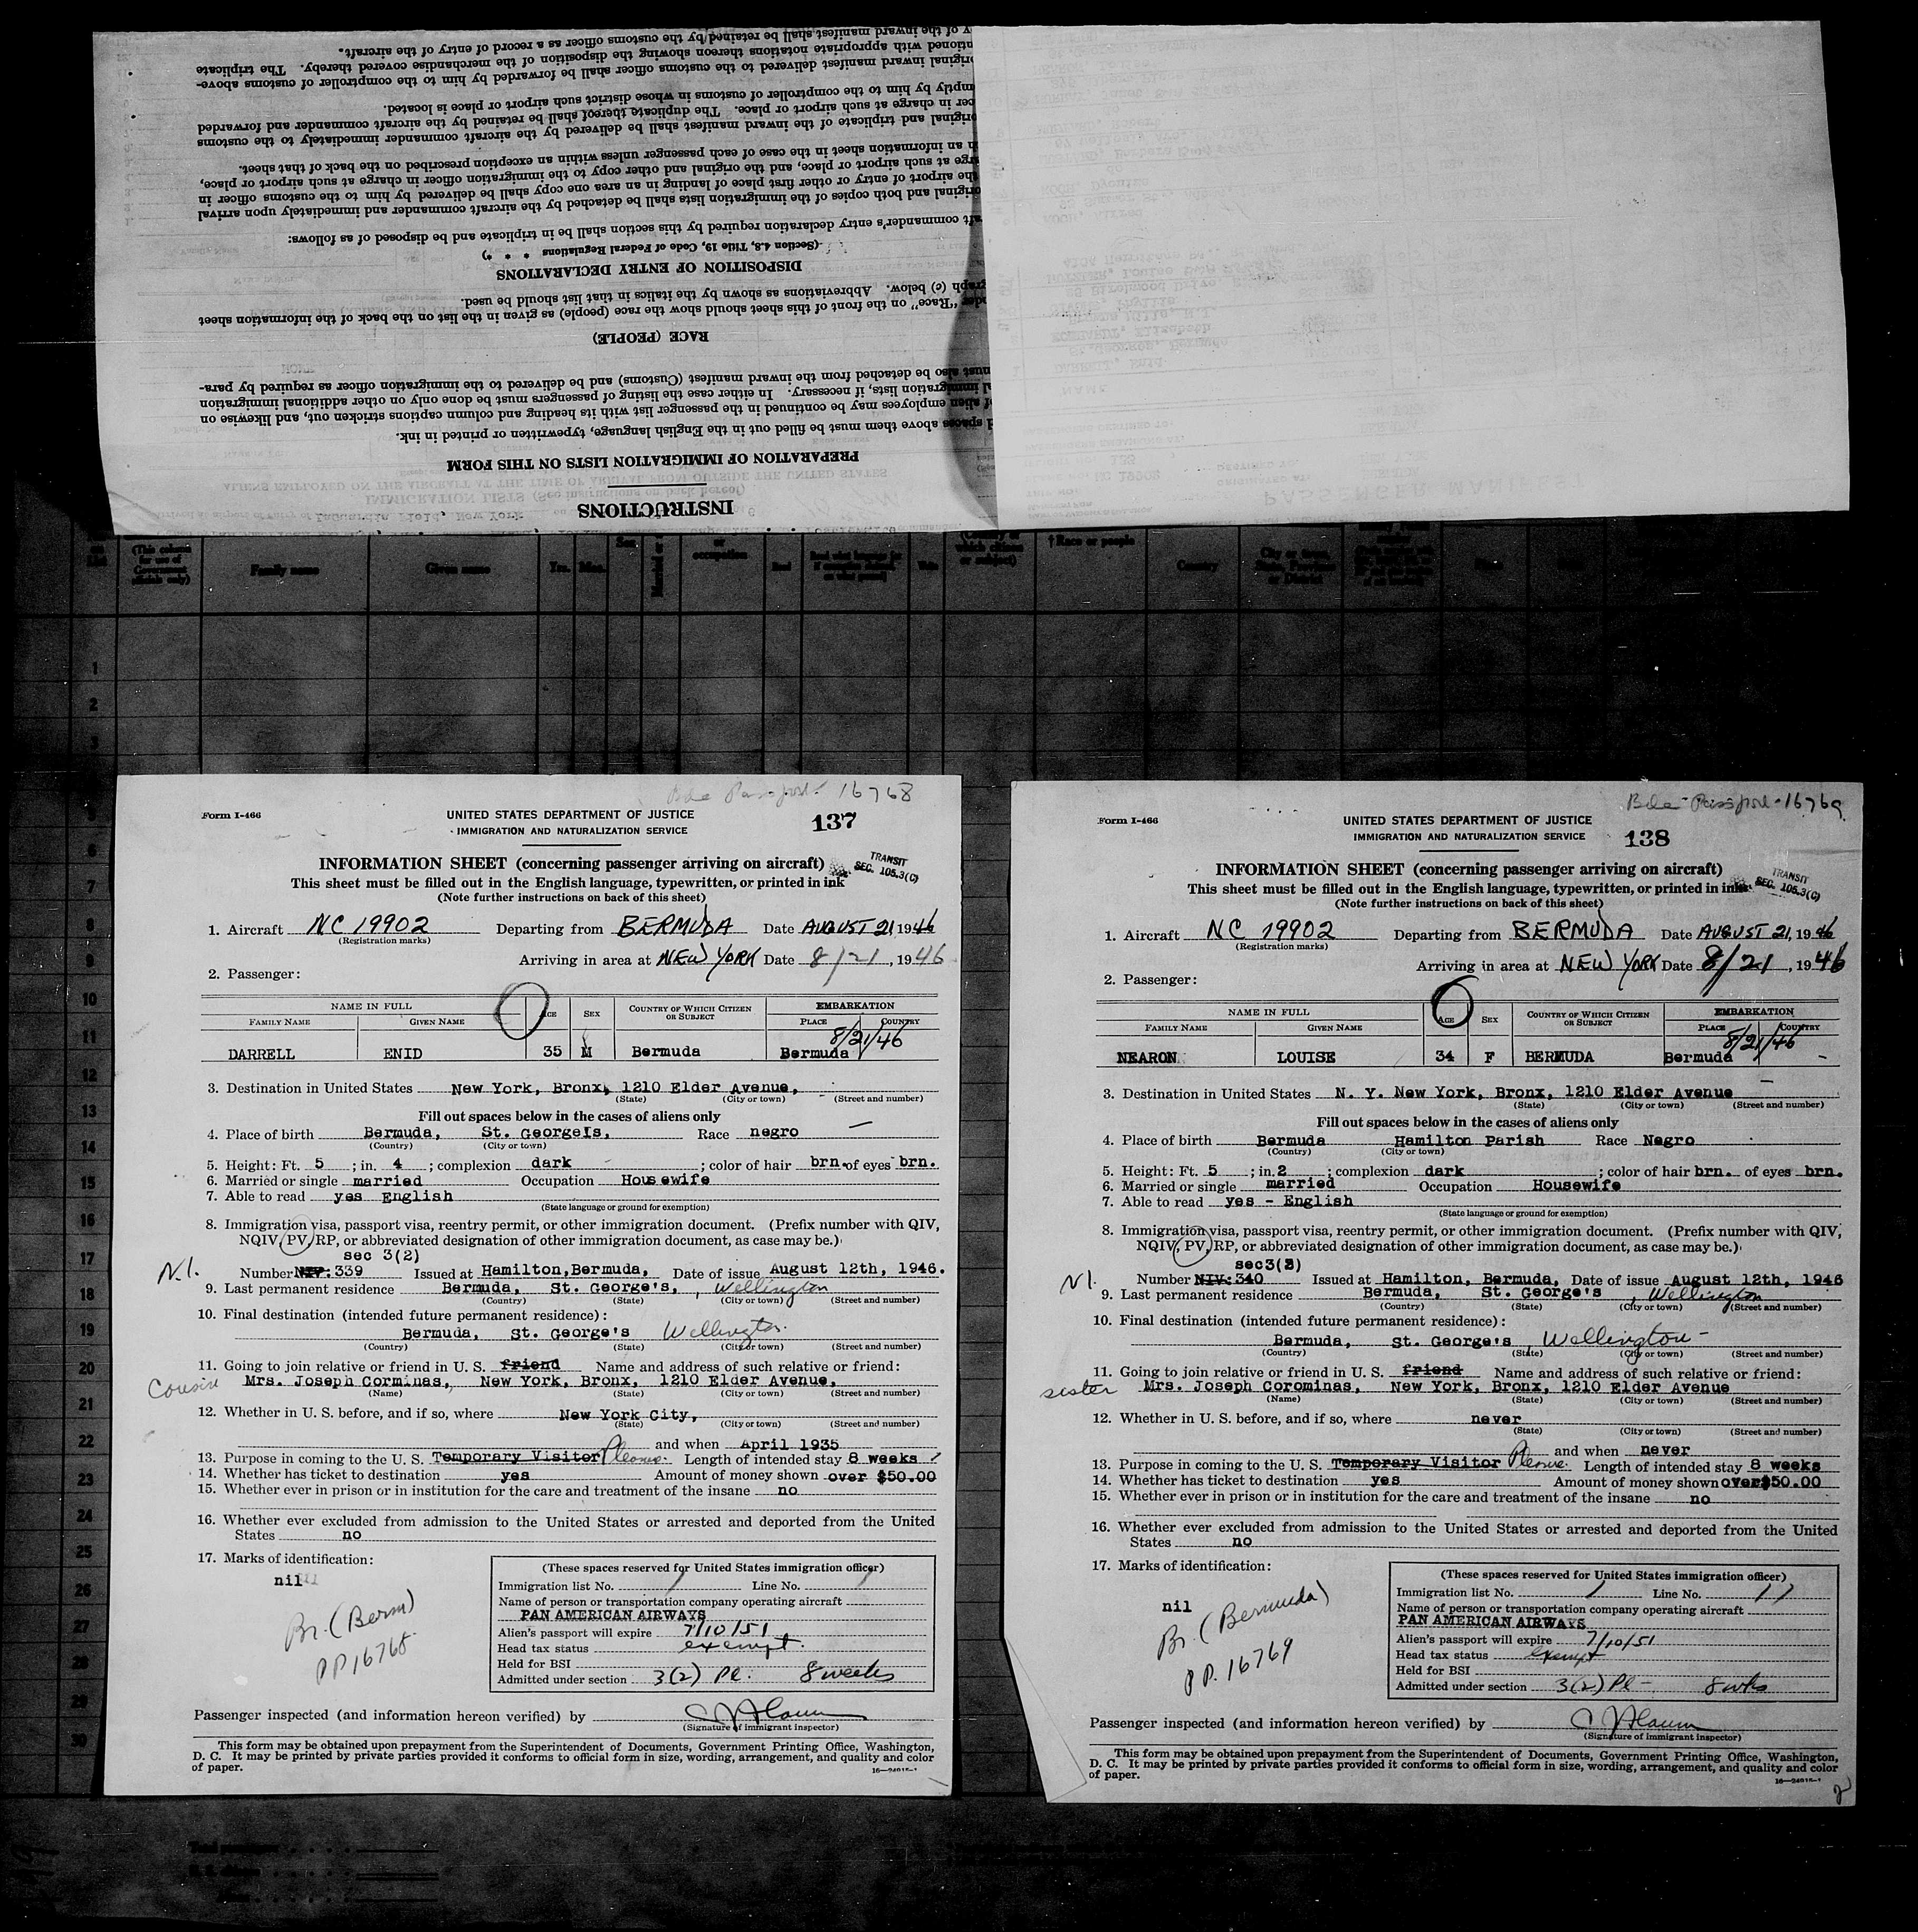 y of the inward manifest shall be retained by the customs officer as a record of entry of the aircraft.
ntioned with appropriate notations thereon showing the disposition of the merchandise covered thereby. The triplicate
original inward manifest delivered to the customs officer shall be forwarded by him to the comptroller of customs above-
mptly by him to the comptroller of customs in whose district such airport or place is located.
cer in charge at such airport or place. The duplicate thereof shall be retained by the aircraft commander and forwarded
original and triplicate of the inward manifest shall be delivered by the aircraft commander immediately to the customs
h an information sheet in the case of each passenger unless within an exception prescribed on the back of that sheet.
arge at such airport or place, and the original and other copy to the immigration officer in charge at such airport or place,
the airport of entry or other first place of landing in an area one copy shall be delivered by him to the customs officer in
original and both copies of the immigration lists shall be detached by the aircraft commander and immediately upon arrival
aft commander's entry declaration required by this section shall be in triplicate and be disposed of as follows:
(Section 4.8, Title 19, Code of Federal Regulations * * *)
DISPOSITION OF ENTRY DECLARATIONS
graph (c) below. Abbreviations as shown by the italics in that list should be used.
nder "Race" on the front of this sheet should show the race (people) as given in the list on the back of the information sheet
RACE (PEOPLE)
must also be detached from the inward manifest (Customs) and be delivered to the immigration officer as required by para-
al immigration lists, if necessary. In either case the listing of passengers must be done only on other additional immigration
of alien employees may be continued in the passenger list with its heading and column captions stricken out, and likewise on
d spaces above them must be filled out in the English language, typewritten or printed in ink.
PREPARATION OF IMMIGRATION LISTS ON THIS FORM
INSTRUCTIONS
(This column for use of Government officials only)
Family name
Given name
Yrs. Mos.
Sex
or occupation
Read
which citizen or subject)
† Race or people
Country
City or town, State, Province or District
1
2
3
5
6
7
8
9
10
11
12
13
14
15
16
17
18
19
20
21
22
23
24
25
26
27
28
29
30
Bda Passport 16768
Form I-466
UNITED STATES DEPARTMENT OF JUSTICE
IMMIGRATION AND NATURALIZATION SERVICE
137
INFORMATION SHEET (concerning passenger arriving on aircraft)
TRANSIT
SEC. 105.3(C)
This sheet must be filled out in the English language, typewritten, or printed in ink
(Note further instructions on back of this sheet)
1. Aircraft NC 19902 Departing from BERMUDA Date AUGUST 21, 1946
(Registration marks)
Arriving in area at NEW YORK Date 8/21, 1946
2. Passenger:
NAME IN FULL AGE SEX COUNTRY OF WHICH CITIZEN OR SUBJECT EMBARKATION
FAMILY NAME GIVEN NAME PLACE COUNTRY
8/21/46
DARRELL ENID 35 M Bermuda Bermuda
3. Destination in United States New York, Bronx, 1210 Elder Avenue,
(State) (City or town) (Street and number)
Fill out spaces below in the cases of aliens only
4. Place of birth Bermuda, St. GeorgeIs, Race negro
(Country) (City or town)
5. Height: Ft. 5 ; in. 4 ; complexion dark ; color of hair brn. of eyes brn.
6. Married or single married Occupation Housewife
7. Able to read yes English
(State language or ground for exemption)
8. Immigration visa, passport visa, reentry permit, or other immigration document. (Prefix number with QIV,
NQIV, PV, RP, or abbreviated designation of other immigration document, as case may be.)
sec 3(2)
N.I.
Number NIV: 339 Issued at Hamilton, Bermuda, Date of issue August 12th, 1946.
9. Last permanent residence Bermuda, St. George's, , Wellington
(Country) (State) (City or town) (Street and number)
10. Final destination (intended future permanent residence):
Bermuda, St. George's Wellington
(Country) (State) (City or town) (Street and number)
11. Going to join relative or friend in U. S. friend Name and address of such relative or friend:
Cousin Mrs. Joseph Corminas, New York, Bronx, 1210 Elder Avenue,
(Name) (State) (City or town) (Street and number)
12. Whether in U. S. before, and if so, where New York City,
(State) (City or town) (Street and number)
and when April 1935
13. Purpose in coming to the U. S. Temporary Visitor Pleasure. Length of intended stay 8 weeks
14. Whether has ticket to destination yes Amount of money shown over $50.00
15. Whether ever in prison or in institution for the care and treatment of the insane no
16. Whether ever excluded from admission to the United States or arrested and deported from the United
States no
17. Marks of identification:
nil
Br. (Berm)
PP 16768
(These spaces reserved for United States immigration officer)
Immigration list No. 1 Line No. 1
Name of person or transportation company operating aircraft
PAN AMERICAN AIRWAYS
Alien's passport will expire 7/10/51
Head tax status exempt.
Held for BSI
Admitted under section 3(2) Pl: 8 weeks
Passenger inspected (and information hereon verified) by
(Signature of immigrant inspector)
This form may be obtained upon prepayment from the Superintendent of Documents, Government Printing Office, Washington,
D. C. It may be printed by private parties provided it conforms to official form in size, wording, arrangement, and quality and color
of paper.
Bda Passport 16769
Form I-466
UNITED STATES DEPARTMENT OF JUSTICE
IMMIGRATION AND NATURALIZATION SERVICE
138
INFORMATION SHEET (concerning passenger arriving on aircraft)
TRANSIT
SEC. 105.3(C)
This sheet must be filled out in the English language, typewritten, or printed in ink
(Note further instructions on back of this sheet)
1. Aircraft NC 19902 Departing from BERMUDA Date AUGUST 21, 1946
(Registration marks)
Arriving in area at NEW YORK Date 8/21, 1946
2. Passenger:
NAME IN FULL AGE SEX COUNTRY OF WHICH CITIZEN OR SUBJECT EMBARKATION
FAMILY NAME GIVEN NAME PLACE COUNTRY
8/21/46
NEARON LOUISE 34 F BERMUDA Bermuda
3. Destination in United States N. Y. New York, Bronx, 1210 Elder Avenue
(State) (City or town) (Street and number)
Fill out spaces below in the cases of aliens only
4. Place of birth Bermuda Hamilton Parish Race Negro
(Country) (City or town)
5. Height: Ft. 5 ; in. 2 ; complexion dark ; color of hair brn. of eyes brn.
6. Married or single married Occupation Housewife
7. Able to read yes - English
(State language or ground for exemption)
8. Immigration visa, passport visa, reentry permit, or other immigration document. (Prefix number with QIV,
NQIV, PV, RP, or abbreviated designation of other immigration document, as case may be.)
sec3(2)
NI.
Number NIV: 340 Issued at Hamilton, Bermuda, Date of issue August 12th, 1946
9. Last permanent residence Bermuda, St. George's , Wellington
(Country) (State) (City or town) (Street and number)
10. Final destination (intended future permanent residence):
Bermuda, St. George's, Wellington
(Country) (State) (City or town) (Street and number)
11. Going to join relative or friend in U. S. friend Name and address of such relative or friend:
sister Mrs. Joseph Corominas, New York, Bronx, 1210 Elder Avenue
(Name) (State) (City or town) (Street and number)
12. Whether in U. S. before, and if so, where never
(State) (City or town) (Street and number)
and when never
13. Purpose in coming to the U. S. Temporary Visitor Pleasure. Length of intended stay 8 weeks
14. Whether has ticket to destination yes Amount of money shown over $50.00
15. Whether ever in prison or in institution for the care and treatment of the insane no
16. Whether ever excluded from admission to the United States or arrested and deported from the United
States no
17. Marks of identification:
nil
Br. (Bermuda)
PP. 16769
(These spaces reserved for United States immigration officer)
Immigration list No. 1 Line No. 11
Name of person or transportation company operating aircraft
PAN AMERICAN AIRWAYS
Alien's passport will expire 7/10/51
Head tax status exempt
Held for BSI
Admitted under section 3(2) Pl - 8 wks
Passenger inspected (and information hereon verified) by
(Signature of immigrant inspector)
This form may be obtained upon prepayment from the Superintendent of Documents, Government Printing Office, Washington,
D. C. It may be printed by private parties provided it conforms to official form in size, wording, arrangement, and quality and color
of paper.
2